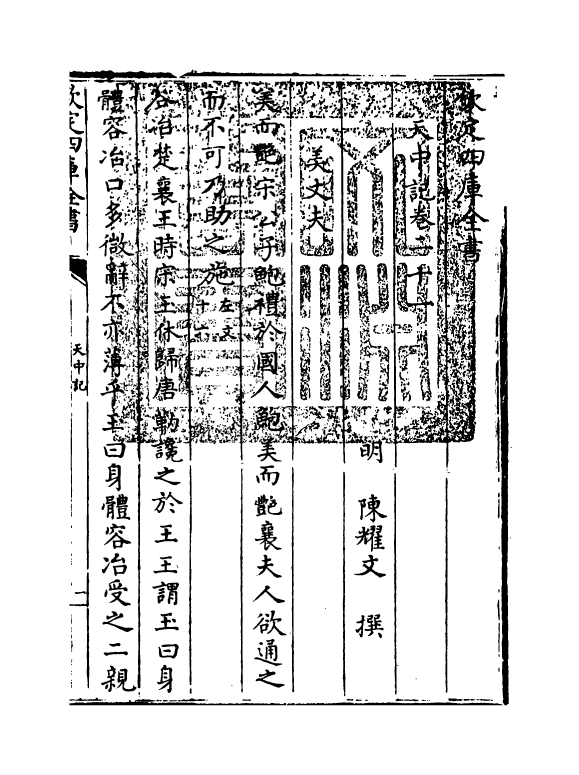 欽定四庫全書
天中記卷二十一
明 陳耀文 撰
美丈夫
美而艷宋公子鮑禮於國人鮑美而艷襄夫人欲通之
而不可乃助之施左文十六
容冶楚襄王時宋玉休歸唐勒讒之於王王謂玉曰身
體容冶口多微辭不亦薄乎玉曰身體容冶受之二親
欽定四庫全書 天中記